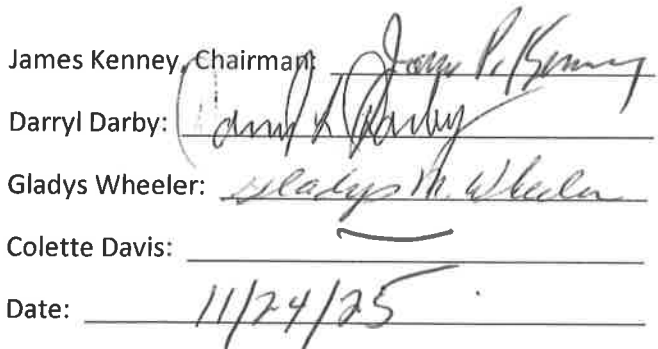 James Kenney, Chairman: James P. Kenney
Darryl Darby: Darryl L Darby
Gladys Wheeler: Gladys M. Wheeler
Colette Davis:
Date: 11/24/25